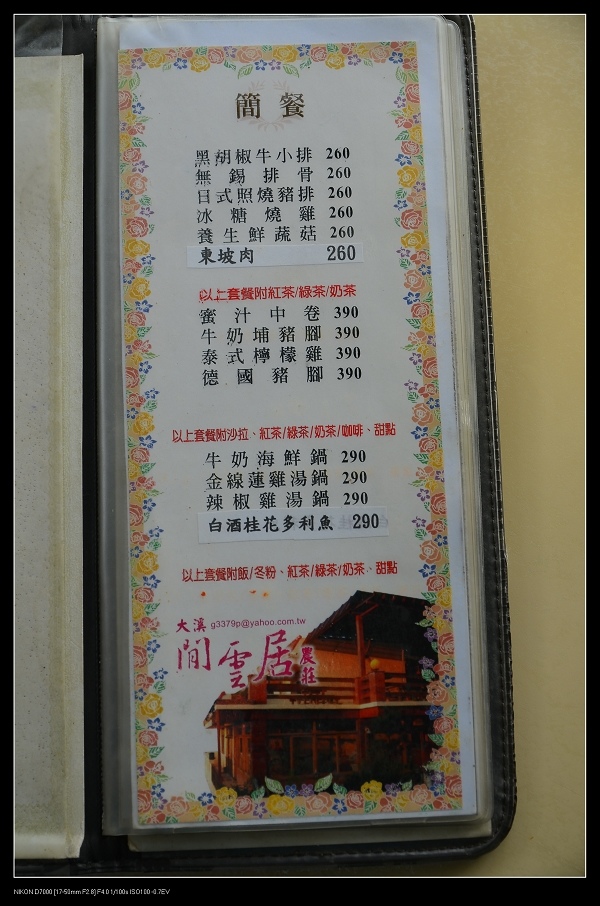 簡餐
黑胡椒牛小排 260
無錫排骨 260
日式照燒豬排 260
冰糖燒雞 260
養生鮮蔬菇 260
東坡肉 260
以上套餐附紅茶/綠茶/奶茶
蜜汁中卷 390
牛奶埔豬腳 390
泰式檸檬雞 390
德國豬腳 390
以上套餐附沙拉、紅茶/綠茶/奶茶/咖啡、甜點
牛奶海鮮鍋 290
金線蓮雞湯鍋 290
辣椒雞湯鍋 290
白酒桂花多利魚 290
以上套餐附飯/冬粉、紅茶/綠茶/奶茶、甜點
大溪 g3379p@yahoo.com.tw
閒雲居農莊
NIKON D7000 [17-50mm F2.8] F4.0 1/100s ISO100 -0.7EV